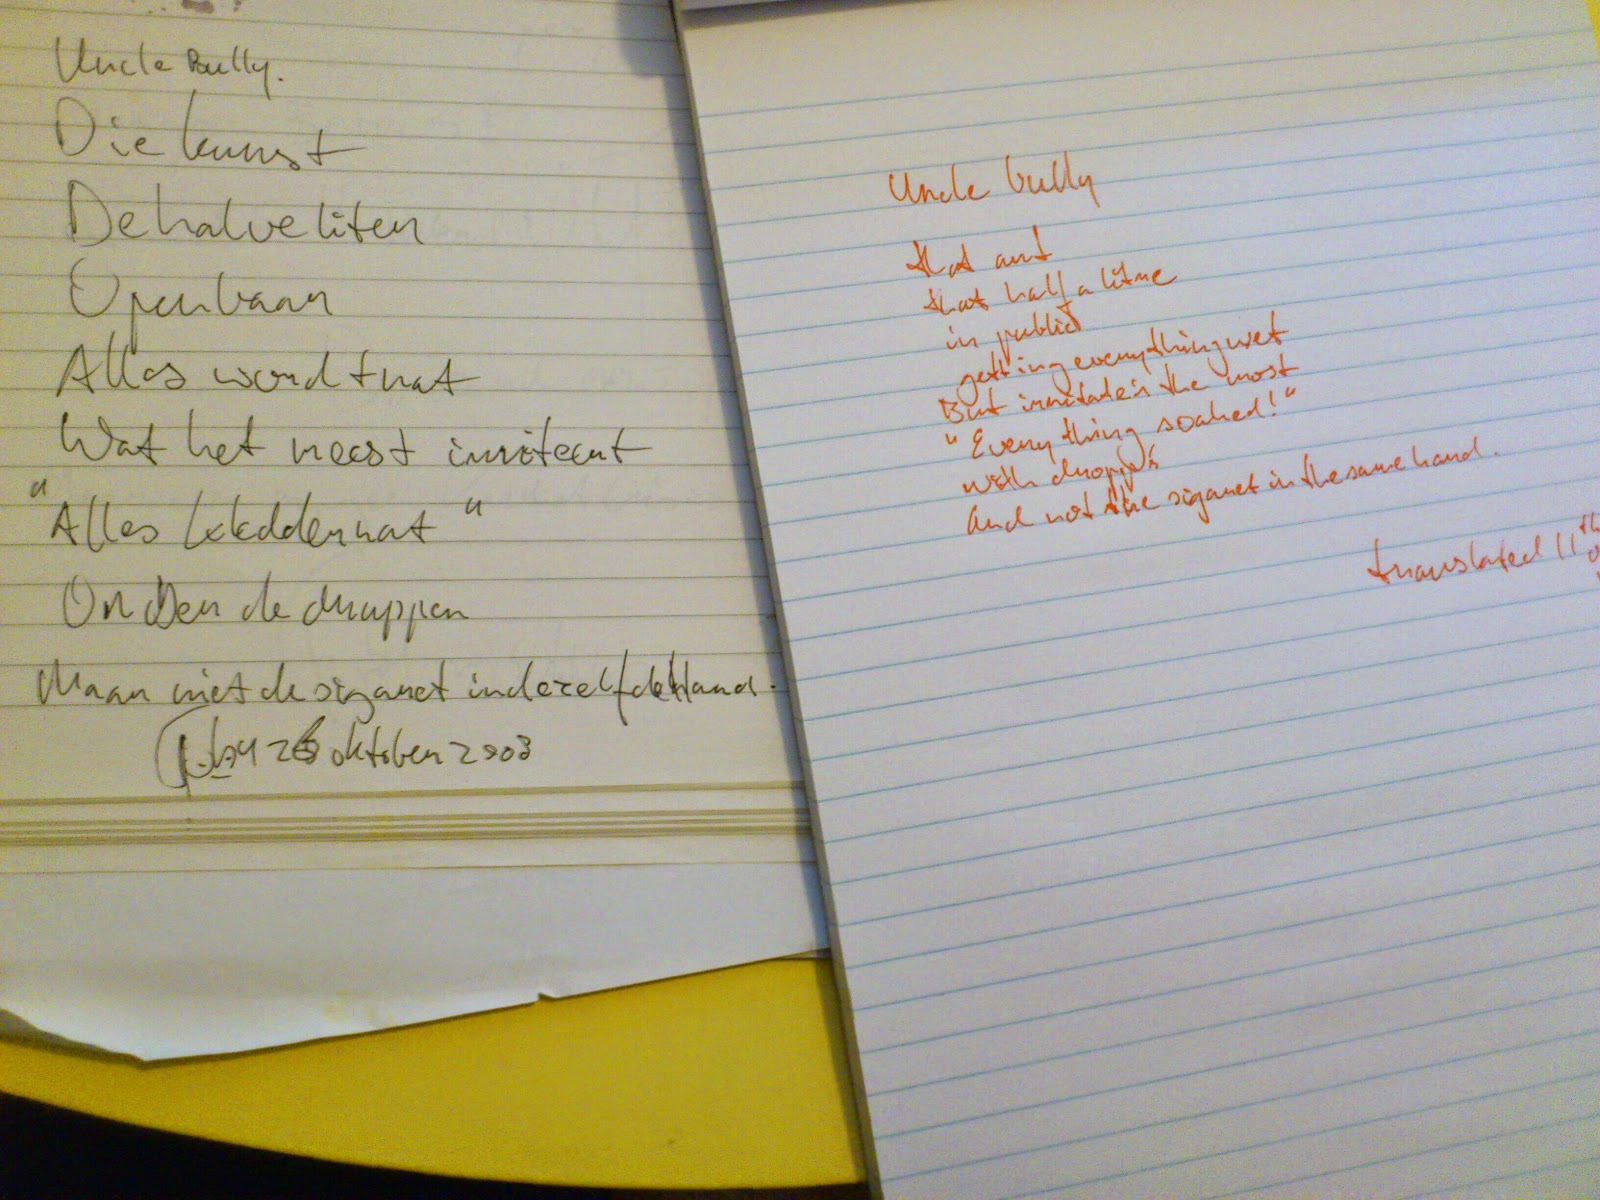 Uncle Bully.
Die kunst
De halve liter
Openbaar
Alles wordt nat
Wat het meest irriteert
"Alles kledder nat"
Onder de druppen
Maar niet de sigaret in dezelfde hand.
26 oktober 2003
Uncle bully
that art
that half a litre
in public
getting everything wet
But irritate's the most
"Everything soaked!"
with droppi's
And not the sigaret in the same hand.
translated 11th